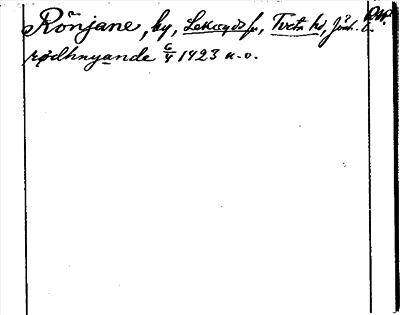 Rönjane, by, Lekeryds sn, Tveta hd, Jönk. l.
rødhnyande 6/4 1423 u. o.